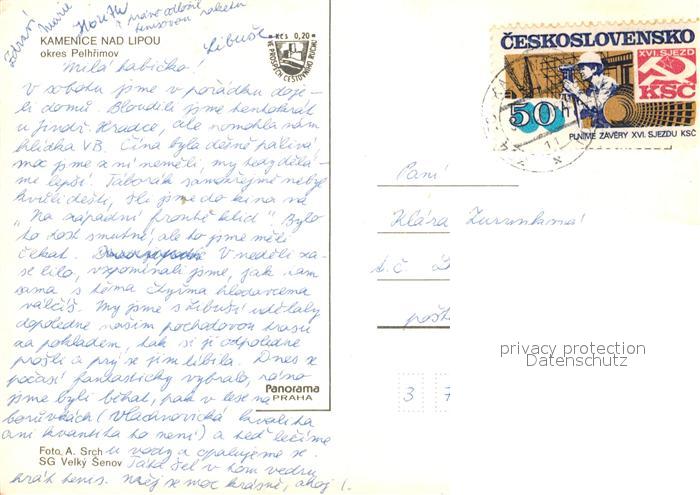 Zdraví Marie
Honza
a právě odložil raketu
tenisovou
Libuše
KAMENICE NAD LIPOU
okres Pelhřimov
Kčs 0,20
VE PROSPĚCH CESTOVNÍHO RUCHU
Milá babičko!
V sobotu jsme v pořádku doje-
li domů. Bloudili jsme tentokrát
u Jindř. Hradce, ale pomohla nám
hlídka VB. Čína byla děsně pálivá,
moc jsme z ní neměli, my tedy dělá-
me lepší. Táborák samozřejmě nebyl
kvůli dešti, šli jsme do kina na
"Na západní frontě klid". Bylo
to dost smutné, ale to jsme měli
čekat. V neděli za-
se lilo, vzpomínali jsme, jak tam
sama s těma čtyřma hlodavcema
válčíš. My jsme s Libuší udělaly
dopoledne naším pochodovou trasu
za pohledem, tak si ji odpoledne
prošli a prý se jim líbila. Dnes se
počasí fantasticky vybralo, ráno
jsme byli běhat, pak v lese na
borůvkách (Vladinovická kvalita
ani kvantita to není) a teď ležíme
u vody a opalujeme se.
Táta šel v tom vedru
hrát tenis. Měj se moc krásně, ahoj!
Foto A. Srch
SG Velký Šenov
Panorama
PRAHA
ČESKOSLOVENSKO
XVI. SJEZD
KSČ
50
PLNÍME ZÁVĚRY XVI. SJEZDU KSČ
Paní
Klára
č.
pošt
3 7
privacy protection
Datenschutz